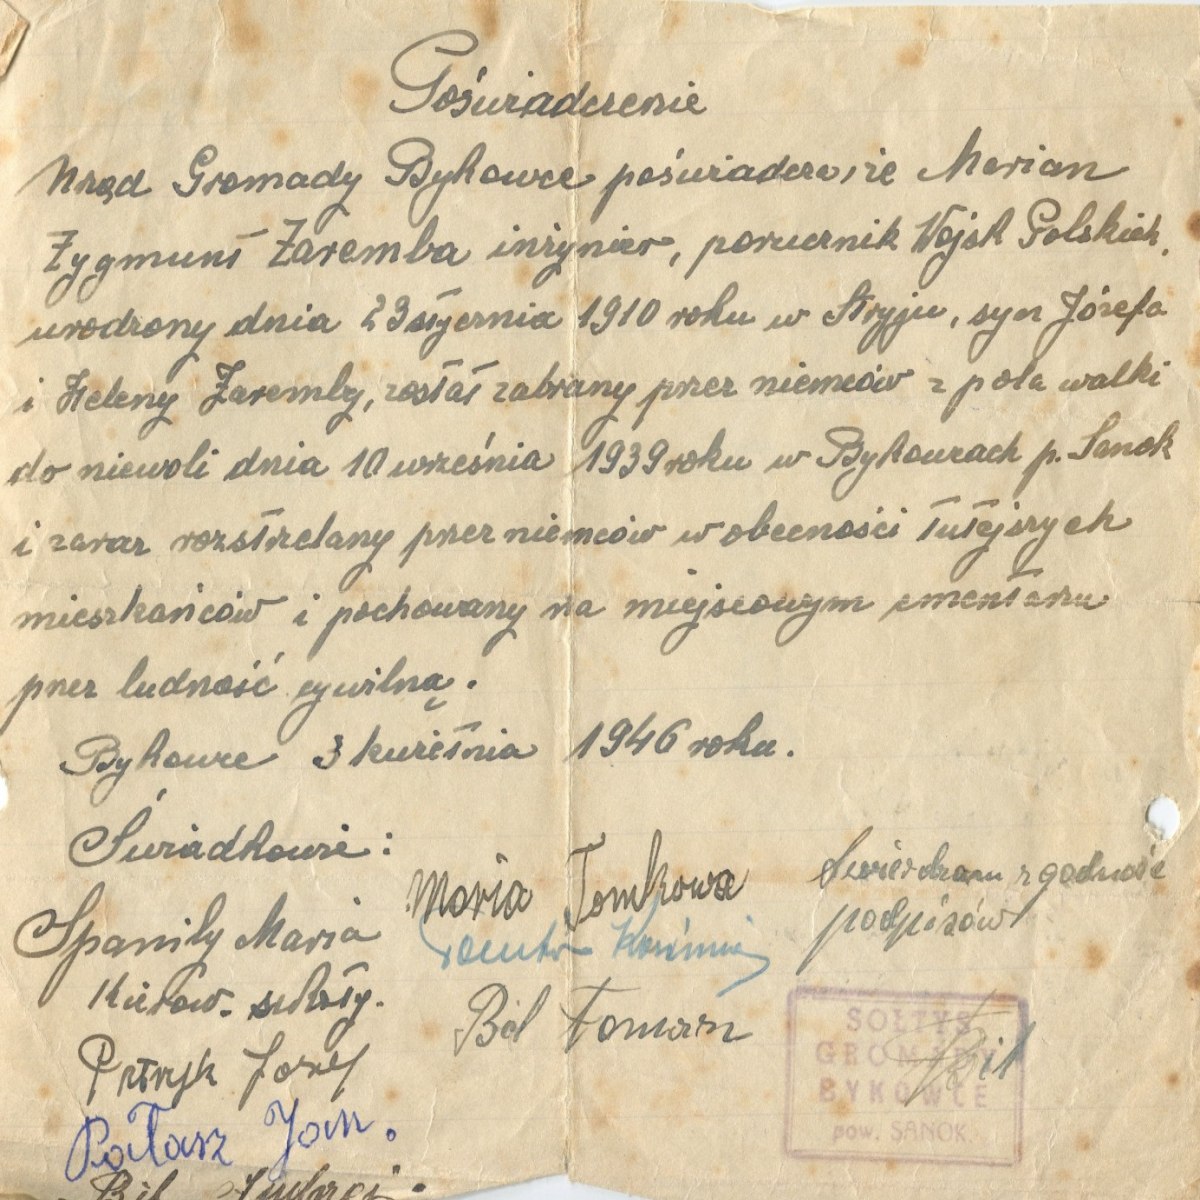 Poświadczenie
Urząd Gromady Bykowce poświadcza, że Marian
Zygmunt Zaremba inżynier, porucznik Wojsk Polskich,
urodzony dnia 23 stycznia 1910 roku w Stryju, syn Józefa
i Heleny Zaremby, został zabrany przez niemców z pola walki
do niewoli dnia 10 września 1939 roku w Bykowcach p. Sanok
i zaraz rozstrzelany przez niemców w obecności tutejszych
mieszkańców i pochowany na miejscowym cmentarzu
przez ludność cywilną.
Bykowce 3 kwietnia 1946 roku.
Świadkowie:
Spanily Maria
Kierow. szkoły.
Patryk Józef
Pałasz Jan.
Bil Andrzej.
Maria Tomkowa
Bil Roman
Stwierdzam zgodność
podpisów
SOŁTYS
GROMADY
BYKOWCE
pow. SANOK
Bil